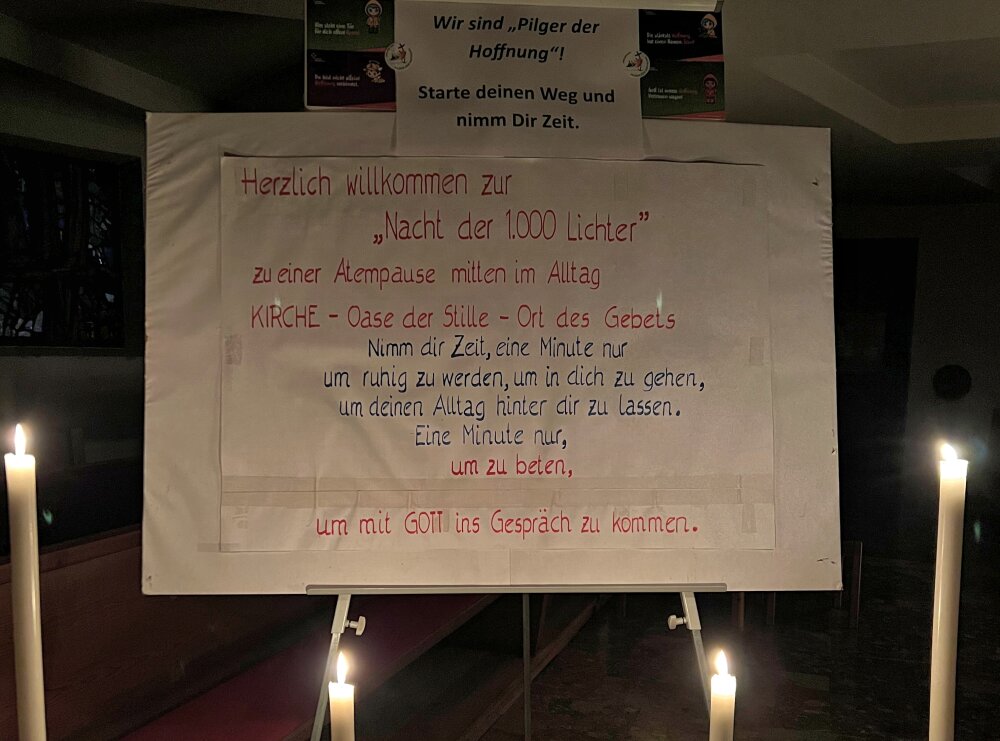 Wir sind „Pilger der
Hoffnung“!
Starte deinen Weg und
nimm Dir Zeit.
Herzlich willkommen zur
„Nacht der 1.000 Lichter”
zu einer Atempause mitten im Alltag
KIRCHE - Oase der Stille - Ort des Gebets
Nimm dir Zeit, eine Minute nur
um ruhig zu werden, um in dich zu gehen,
um deinen Alltag hinter dir zu lassen.
Eine Minute nur,
um zu beten,
um mit GOTT ins Gespräch zu kommen.